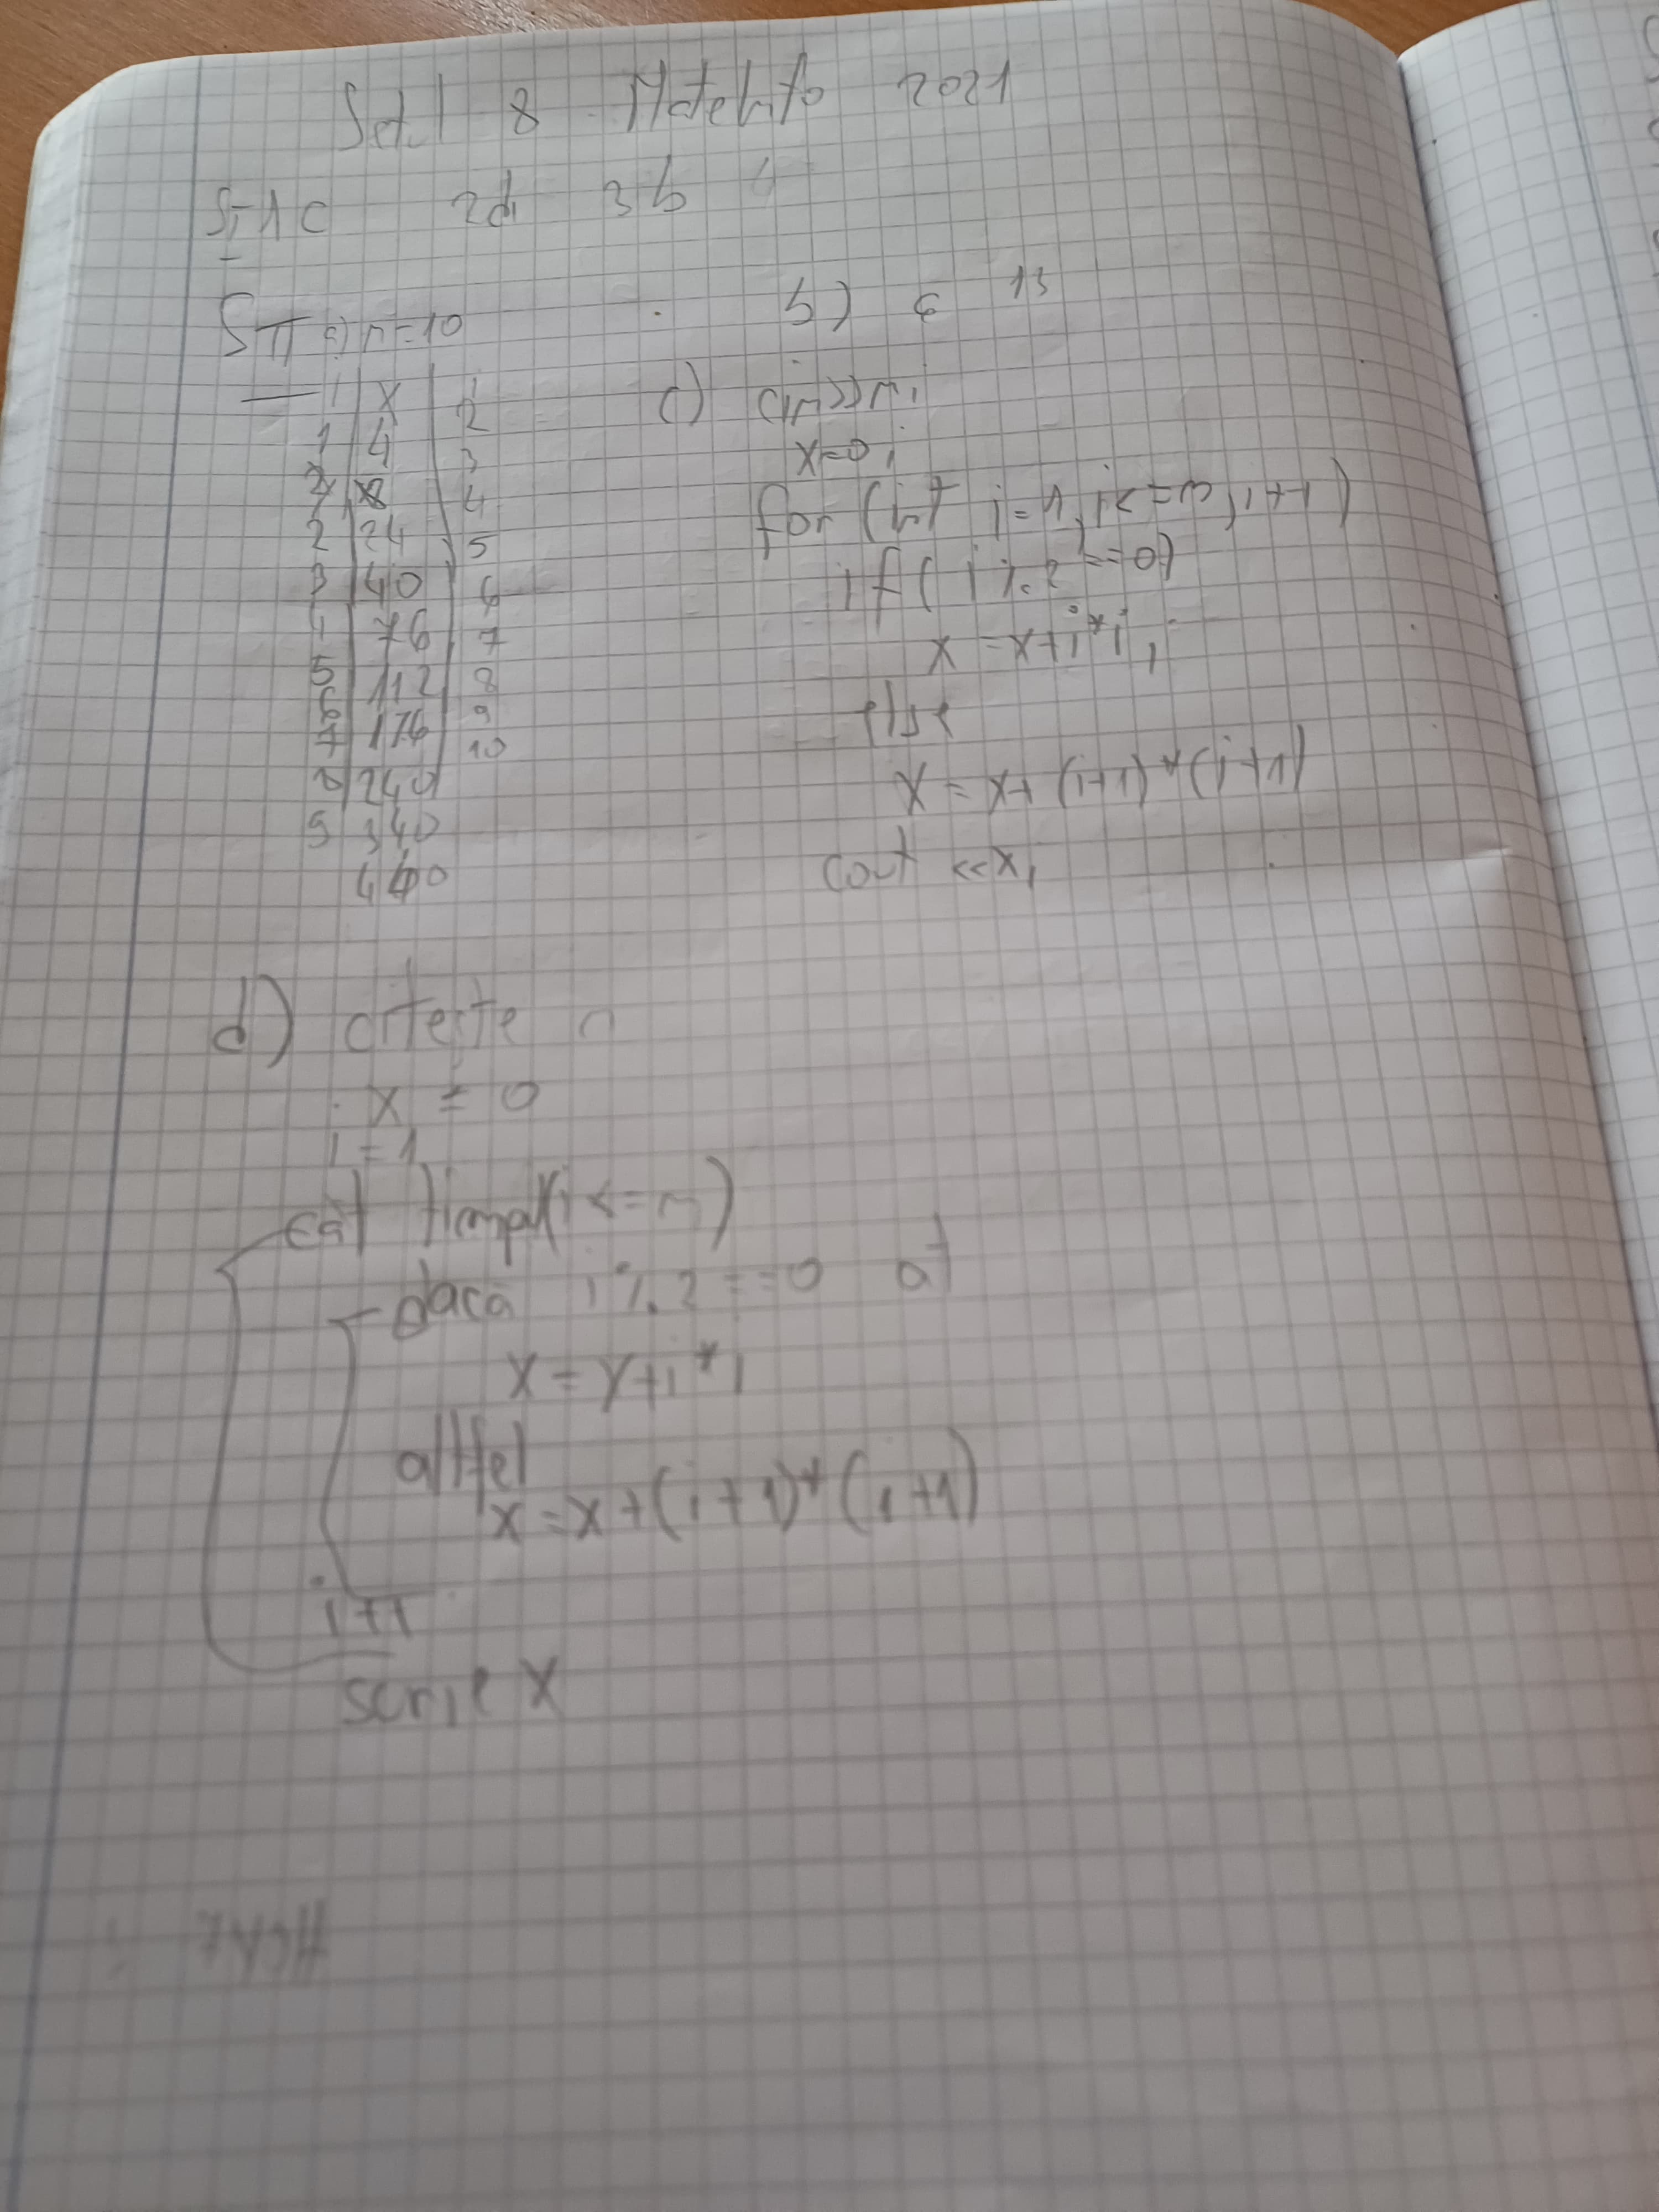 Setul 8 MateInfo 2021
SI 1c 2d 3b 4
SII a) n=10
b) 13
i | x | i
1 | 4 | 2
2 | 8 | 3
2 | 24 | 4
3 | 40 | 5
4 | 76 | 6
5 | 112 | 7
6 | 176 | 8
7 | 240 | 9
8 | 340 | 10
9 | 440
c) cin>>n;
x=0;
for (int i=1; i<=n; i++)
if (i%2==0)
x=x+i*i;
else
x=x+(i+1)*(i+1)
cout <<x;
d) citește n
x = 0
i=1
cât timp(i<=n)
dacă i%2==0 at
x=x+i*i
altfel
x=x+(i+1)*(i+1)
i++
scrie x